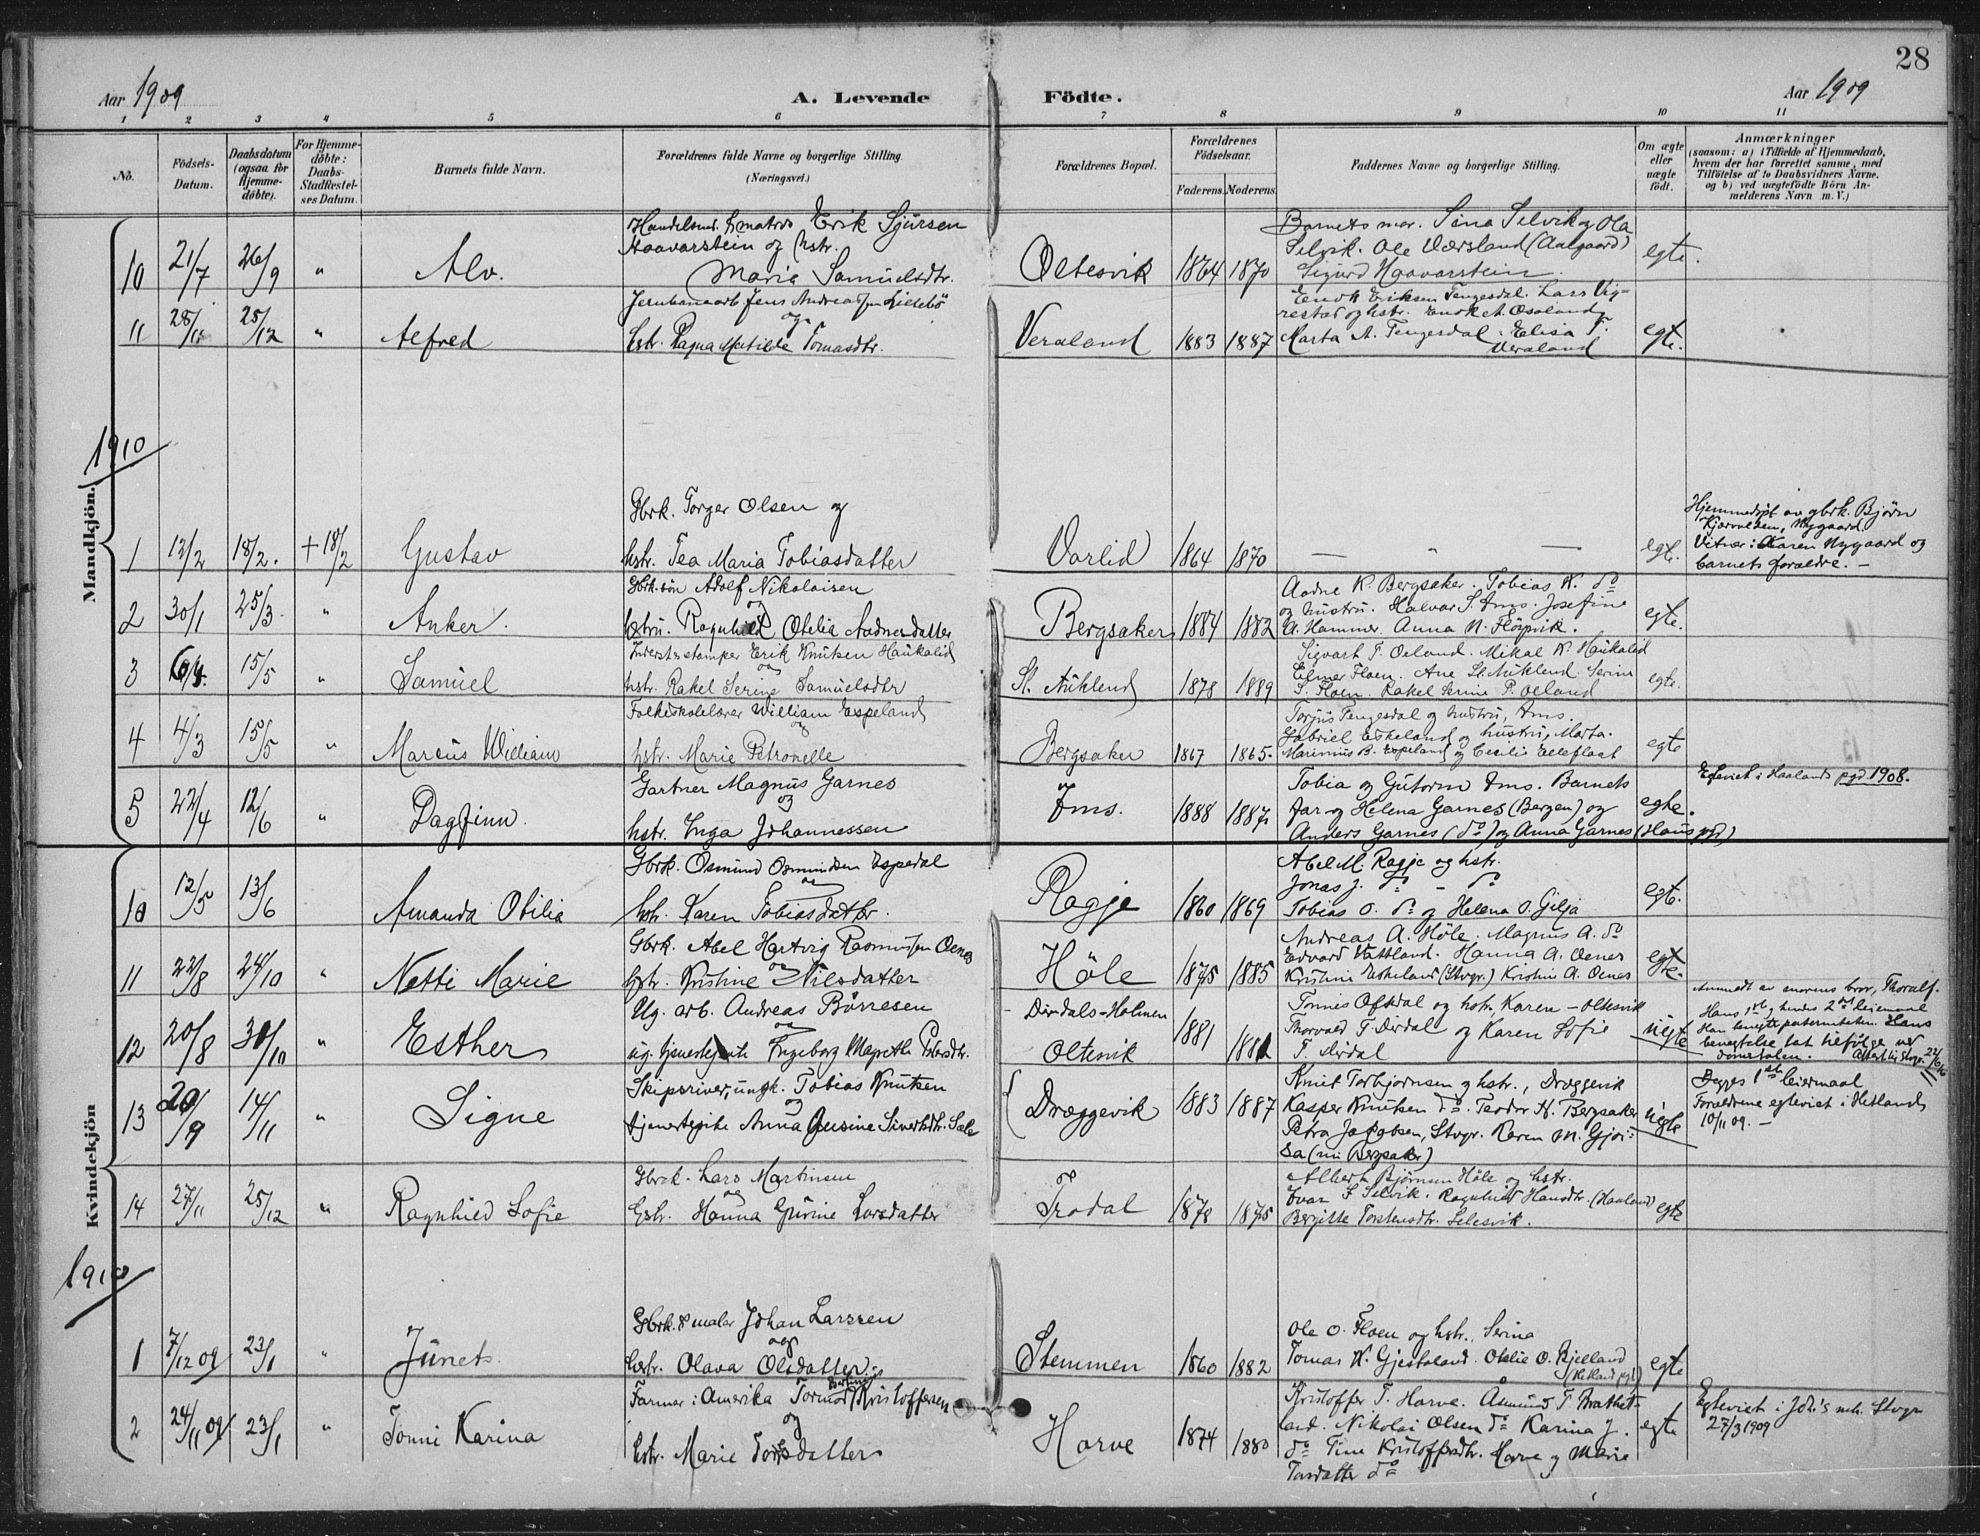 28
Aar 1909
A. Levende Födte.
Aar 1909
1 2 3 4 5 6 7 8 9 10 11
No.
Födsels-
Datum.
Daabsdatum
(ogsaa for
Hjemme-
döbte).
For Hjemme-
döbte:
Daabs-
Stadfæstel-
ses Datum.
Barnets fulde Navn.
Forældrenes fulde Navne og borgerlige Stilling.
(Næringsvei.)
Forældrenes Bopæl.
Forældrenes
Födselsaar.
Faderens. Moderens.
Faddernes Navne og borgerlige Stilling.
Om ægte
eller
uægte
födt.
Anmærkninger
(saasom: a) i Tilfælde af Hjemmedaab,
hvem der har forrettet samme, med
Tilföielse af to Daabsvidners Navne,
og b) ved uægtefödte Börn An-
melderens Navn m. V.)
Mandkjön.
10 21/7 26/9 " Alv.
Erik Sjursen
Haavarstein og hstr.
Maria Samuelsdtr.
Oltesvik 1864 1870
Barnets mor. Sina Selvik og Ola
Selvik. Ole Værsland (Aalgaard)
Sigurd Haavarstein.
egte.
11 28/11 25/12 " Alfred
Jernbanearb. Jens Andreassen Lillebö
og
hstr. Ragna Matilde Tomasdtr.
Veraland 1883 1887
Enok Eriksen Tengesdal. Lars Vig-
restad og hstr. Enok A. Osaland
Marta A. Tengesdal. Elisa T.
Veraland
egte.
1910
1 13/2 18/2. +18/2 Gustav
Gbrk. Torger Olsen og
hstr. Tea Maria Tobiasdatter
Varlid 1864 1870
— " —
egte.
Hjemmedöpt av gbrk. Björn
Nygaard.
Vitner: Karen Nygaard og
barnets forældre. —
2 30/1 25/3. " Anker.
Gbrk.sön Adolf Nikolaisen
og
hstru. Ragnhild Otelia Aadnesdatter
Bergsaker 1884 1882
Aadne K. Bergsaker. Tobias K. do
og hustru. Halvar S. Ims. Josefine
A. Hammer. Anna N. Flörvik.
egte.
3 15/5 " Samuel
Erik Knutsen Haukalid
og
hstr. Rakel Serine Samuelsdtr
St. Aukland 1878 1889
Sigvart T. Oeland. Mikal K. Haukalid
Elmer Floen. Ane St. Aukland. Serine
S. Floen. Rakel Serine P. Oeland
egte.
4 4/3 15/5 " Marcus William
Folkeskolelærer William Espeland
og
hstr. Marie Petronelle
Bergsaker 1867 1865.
Torjus Tengesdal og hustru, Ims.
Gabriel Eskeland og hustru, Marta.
Marinius B. Espeland og Cecilie Elleflaat
egte
5 22/4 12/6 " Dagfinn.
Gartner Magnus Garnes
og
hstr. Inga Johannessen
Ims. 1888 1887.
Tobia og Gutorm Ims. Barnets
far og Helena Garnes (Bergen) og
Anders Garnes (do) og Anna Garnes (Haus pgd)
egte.
Egteviet i Haaland pgd. 1908.
Kvindekjön
10 12/5 13/6 Amanda Otilia
Gbrk. Osmund Osmundsen Espedal
og
hstr. Karen Tobiasdatter.
Ragje 1860 1869
Abel M. Ragje og hstr.
Jonas J. do - do
Tobias O. do og Helena O. Gilja
egte.
11 22/8 24/10 " Netti Marie
Gbrk. Abel Hartvig Rasmussen Oenes
og
hstr. Kristine Nilsdatter
Höle 1875 1885
Andreas A. Höle. Magnus A. do
Edvard Vattland. Hanna A. Oenes
Kristine Eskeland (Stvgr.) Kristine A. Oenes
egte.
12 20/8 30/10 " Esther
Ug. arb. Andreas Börresen
og
ug. tjenestejente Ingeborg Magrethe Pedersdtr.
Dirdals-Holmen
Oltesvik
1881 1881
Tønnis Oftedal og hstr. Karen - Oltesvik
Thorvald T. Dirdal og Karen Sofie
T. Dirdal
uegte
Anmeldt av morens bror, Thoralf.
Hans 1ste, hendes 2det leiermaal
13 20/9 14/11 " Signe
Skipsriver, ungk. Tobias Knutsen
og
tjenestepike Anna Gusine Sivertsdtr. Sele
Dræggevik 1883 1887
Knut Torbjørnsen og hstr., Dræggevik
Kasper Knutsen do. Teodor K. Bergsaker
Petra Jakobsen, Stvgr. Karen M. Gjoi-
sa (nu Bergsaker)
uegte
Begges 1ste leiermaal
Forældrene egteviet i Hetland
10/11 09. —
14 27/11 25/12 " Ragnhild Sofie
Gbrk. Lars Martinsen
og
hstr. Hanna Gurine Larsdatter
Frodal 1878 1875
Albert Bjørnsen Höle og hstr.
Ivar S. Selvik. Ragnhild Hansdtr. (Haaland)
Bergitte Torstensdtr. Selesvik.
egte
1910
1 7/12 09 23/1 " Junets
Gbrk. & maler Johan Larssen
og
hstr. Olava Olsdatter.
Stemmen 1860 1882
Ole O. Floen og hstr. Serina
Tomas K. Gjesteland. Otelie O. Kjelland
(Hetland pgd.)
egte
2 24/11 09 23/1 " Tönni Karina
Farmer i Amerika Tormod Kristoffersen
og
hstr. Marie Torsdatter
Horve 1874 1880
Kristoffer T. Horve. Åsmund T. Brattet-
land. Nikolai Olsen do Karina J.
do Tine Kristoffersdtr. Horve og Marie
Torsdatter do
egte
Egteviet i St. Stvgr
27/3 1909